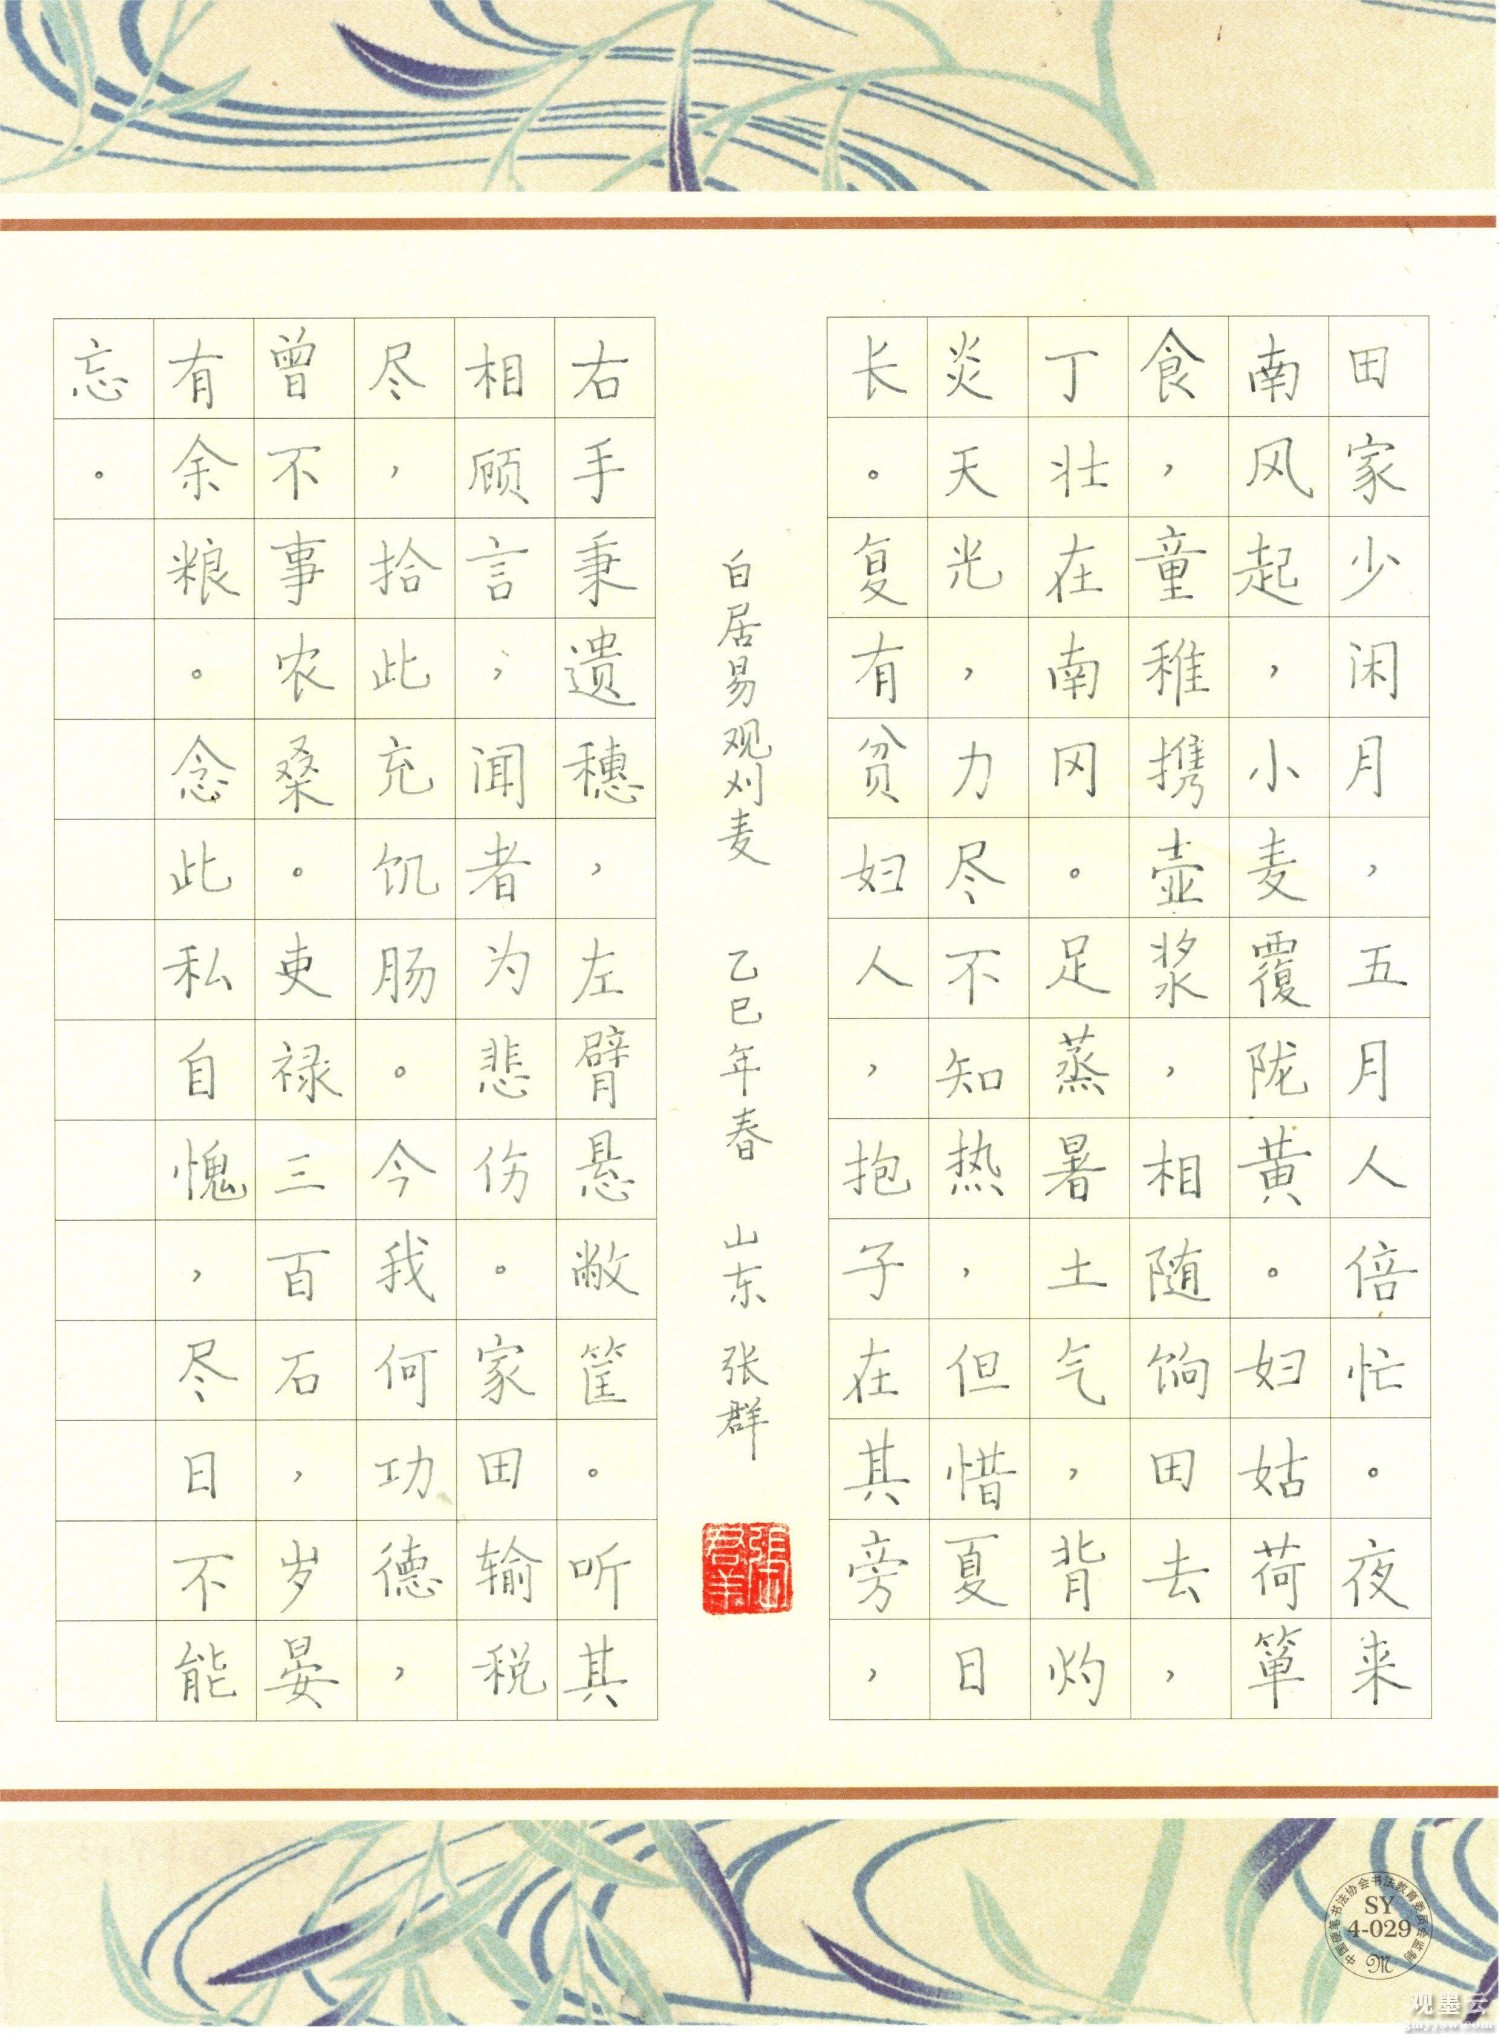 田家少闲月，五月人倍忙。夜来
南风起，小麦覆陇黄。妇姑荷箪
食，童稚携壶浆，相随饷田去，
丁壮在南冈。足蒸暑土气，背灼
炎天光，力尽不知热，但惜夏日
长。复有贫妇人，抱子在其旁，
白居易观刈麦 乙巳年春 山东 张群
张群
右手秉遗穗，左臂悬敝筐。听其
相顾言，闻者为悲伤。家田输税
尽，拾此充饥肠。今我何功德，
曾不事农桑。吏禄三百石，岁晏
有余粮。念此私自愧，尽日不能
忘。
中国硬笔书法协会书法教育委员会监制
SY
4-029
M
观墨云